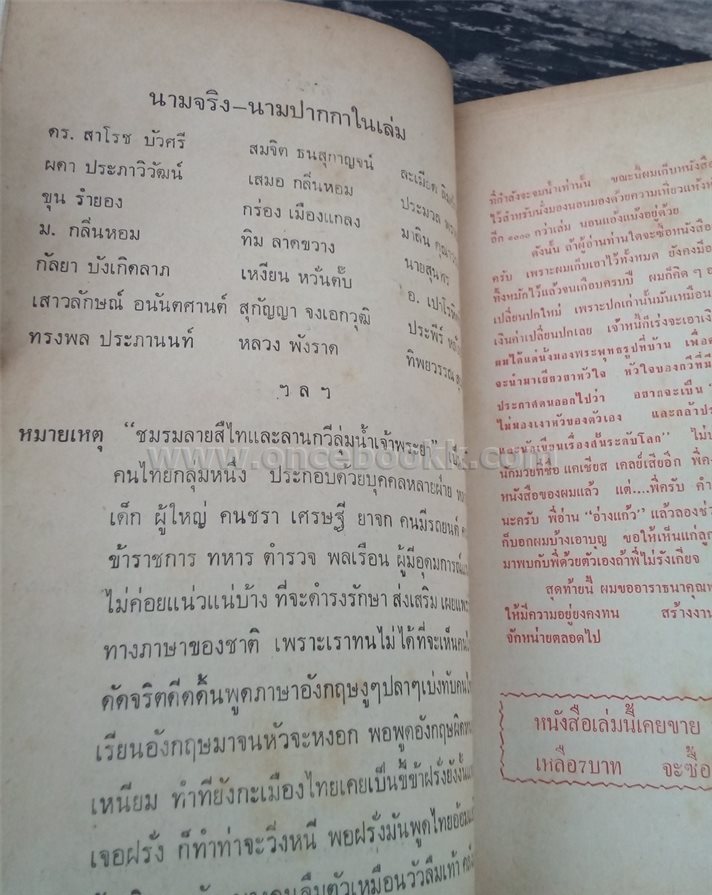 นามจริง–นามปากกาในเล่ม
ดร. สาโรช บัวศรี สมจิต ธนสุกาญจน์ ละเมียด
ผดา ประภาวิวัฒน์ เสมอ กลิ่นหอม ประมวล
ขุน รำยอง กร่อง เมืองแกลง มาลิน
ม. กลิ่นหอม ทิม ลาดขวาง นายสุนทร
กัลยา บังเกิดลาภ เหงียน หวั่นตั๊บ อ.
เสาวลักษณ์ อนันตศานต์ สุกัญญา จงเอกวุฒิ ประพีร์
ทรงพล ประภานนท์ หลวง พังราด ทิพยวรรณ
ฯ ล ฯ
หมายเหตุ “ชมรมลายสือไทและลานกวีลุ่มน้ำเจ้าพระยา”
คนไทยกลุ่มหนึ่ง ประกอบด้วยบุคคลหลายฝ่าย
เด็ก ผู้ใหญ่ คนชรา เศรษฐี ยาจก คนมีรถยนต์
ข้าราชการ ทหาร ตำรวจ พลเรือน ผู้มีอุดมการณ์
ไม่ค่อยแน่วแน่บ้าง ที่จะดำรงรักษา ส่งเสริม เผยแพร่
ทางภาษาของชาติ เพราะเราทนไม่ได้ที่จะเห็น
ดัดจริตดีดดิ้นพูดภาษาอังกฤษงูๆปลาๆเบ่งทับ
เรียนอังกฤษมาจนหัวจะหงอก พอพูดอังกฤษ
เหนียม ทำทียังกะเมืองไทยเคยเป็นขี้ข้าฝรั่งยังงั้น
เจอฝรั่ง ก็ทำท่าจะวิ่งหนี พอฝรั่งมันพูดไทย
ลืมตัวเหมือนวัวลืมเท้า
www.oncebookk.com
ที่กำลังจะจมน้ำเท่านั้น ขณะนี้ผมเก็บหนังสือ
ไว้สำหรับนั่งมองนอนมองด้วยความเหี่ยวแห้ง
อีก ๑๐๐๐ กว่าเล่ม นอนแอ้งแม้งอยู่ด้วย
ดังนั้น ถ้าผู้อ่านท่านใดจะซื้อหนังสือ
ครับ เพราะผมเก็บเอาไว้ทั้งหมด
ทั้งหมักไว้แล้วจนเกือบครบปี ผมก็คิด ๆ
เปลี่ยนปกใหม่ เพราะปกเก่านั้นมันเหมือน
เงินค่าเปลี่ยนปกเลย เจ้าหนี้ก็เร่งจะเอาเงิน
ผมได้แต่นั่งมองพระพุทธรูปที่บ้าน
จะนำมาเยียวยาหัวใจ หัวใจของกวีที่
ประกาศตนออกไปว่า อยากจะเป็น
ไม่มองเงาหัวของตัวเอง และกล้า
และนักเขียนเรื่องสั้นระดับโลก”
นักมวยที่ชื่อ แคเชียส เคลย์เสียอีก
หนังสือของผมแล้ว แต่....พี่ครับ
นะครับ พี่อ่าน “อ่างแก้ว” แล้วลอง
ก็บอกผมบ้างเอาบุญ ขอให้เห็นแก่
มาพบกับพี่ด้วยตัวเองถ้าพี่ไม่รังเกียจ
สุดท้ายนี้ ผมขออาราธนา
ให้มีความอยู่ยงคงทน สร้าง
จักหน่ายตลอดไป
หนังสือเล่มนี้เคยขาย
เหลือ7บาท จะซื้อ